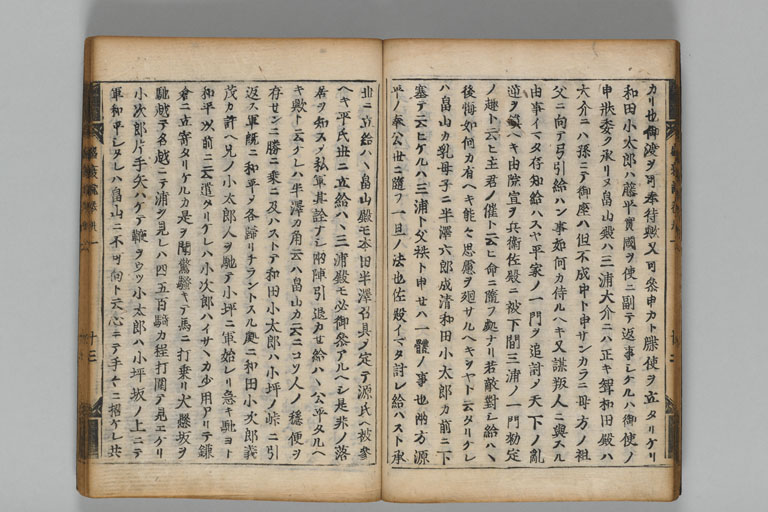 カリ也御渡ヲ可奉待歟又可參申カト牒使ヲ立タリケリ
和田小太郎ハ藤平實國ヲ使ニ副テ返事シケルハ御使ノ
申狀委ク承リヌ畠山殿ハ三浦大介ニハ正キ聟和田殿ハ
大介ニハ孫ニテ御座ハ但不成中ト申サンカラニ母方ノ祖
父ニ向テ弓引給ハン事如何カ侍ルヘキ又謀叛人ニ與スル
由事イマタ存知給ハスヤ平家ノ一門ヲ追討〆天下ノ亂
逆ヲ鎮ヘキ由院宣ヲ兵衛佐殿ニ被下間三浦ノ一門勅定
ノ趣ト云ヒ主君ノ催ト云ヒ命ニ隨フ處ナリ若敵對シ給ハヽ
後悔如何カ有ヘキ能々思慮ヲ廻サルヘキヲヤト云タリケレ
ハ畠山カ乳母子ニ半澤六郎成清和田小太郎カ前ニ下
塞テ云ヒケルハ三浦ト秩父ト申セハ一體ノ事也兩方源
平ノ奉公世ニ隨フ一旦ノ法也佐殿イマタ討レ給ハスト承
世ニ立給ハヽ畠山殿モ本田半澤召具〆定テ源氏ヘ被參
ヘキ平氏世ニ立給ハヽ三浦殿モ必御參アルヘシ是非ノ落
居ヲ知ス〆私軍其詮ナシ兩陣引退カセ給ハヽ公平タルヘ
キ歟ト云ケレハ半澤カ角云ハ畠山カ云ニコソ人ノ穩便ヲ
存センニ勝ニ乗ニ及ハストテ和田小太郎ハ小坪ノ峠ニ引
返ス軍既ニ和平〆各歸リチラントスル處ニ和田小次郎義
茂カ許ヘ兄ノ小太郎人ヲ馳テ小坪ニ軍始レリ急キ馳ヨト
和平以前ニ云遣タリケレハ小次郎ハイサヽカ少用アリテ鎌
倉ニ立寄タリケルカ是ヲ聞驚騒キテ馬ニ打乗リ犬懸坂ヲ
馳越テ名越ニテ浦ヲ見レハ四五百騎カ程打圍テ見エケリ
小次郎片手矢ハケテ鞭ヲウツ小太郎ハ小坪坂ノ上ニテ
軍和平シタレハ畠山ニ不可向ト云心ニテ手々ニ招ケレ共
十三